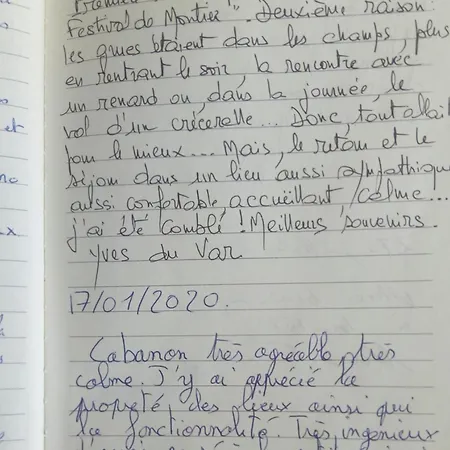 Festival de Montier". Deuxième raison:
les grues étaient dans les champs, plus
en rentrant le soir, la rencontre avec
un renard ou, dans la journée, le
vol d'un crécerelle... Donc, tout allait
pour le mieux... Mais, le retour et le
séjour dans un lieu aussi sympathique
aussi confortable, accueillant, calme...
j'ai été comblé ! Meilleurs souvenirs.
Yves du Var
17/01/2020.
Cabanon très agréable, très
calme. J'y ai apprécié la
propreté des lieux ainsi que
la fonctionnalité. Très ingenieux
et